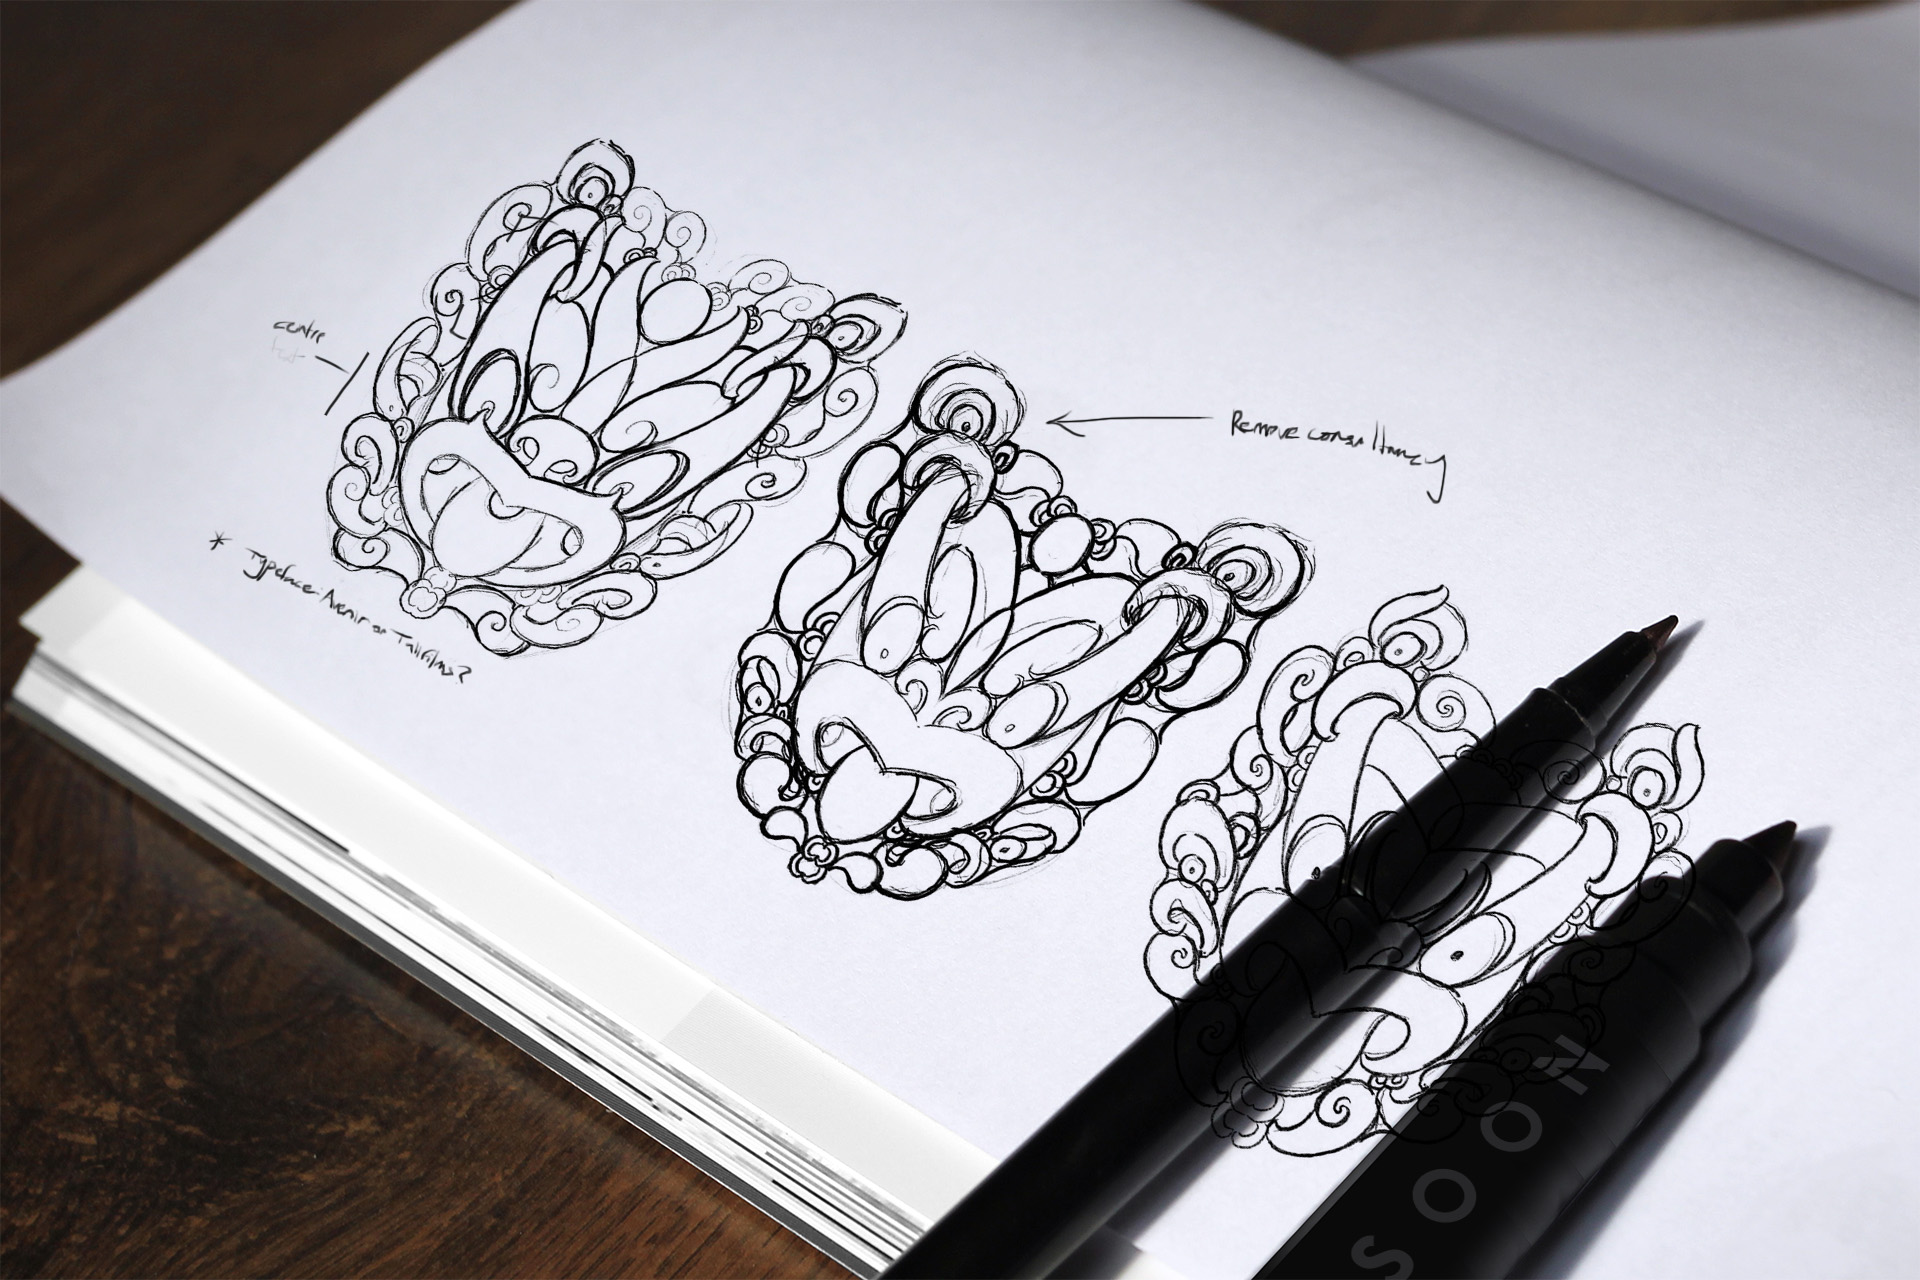 centre
text
Remove consultancy
* Typeface: Avenir or Tall Films?
SOON